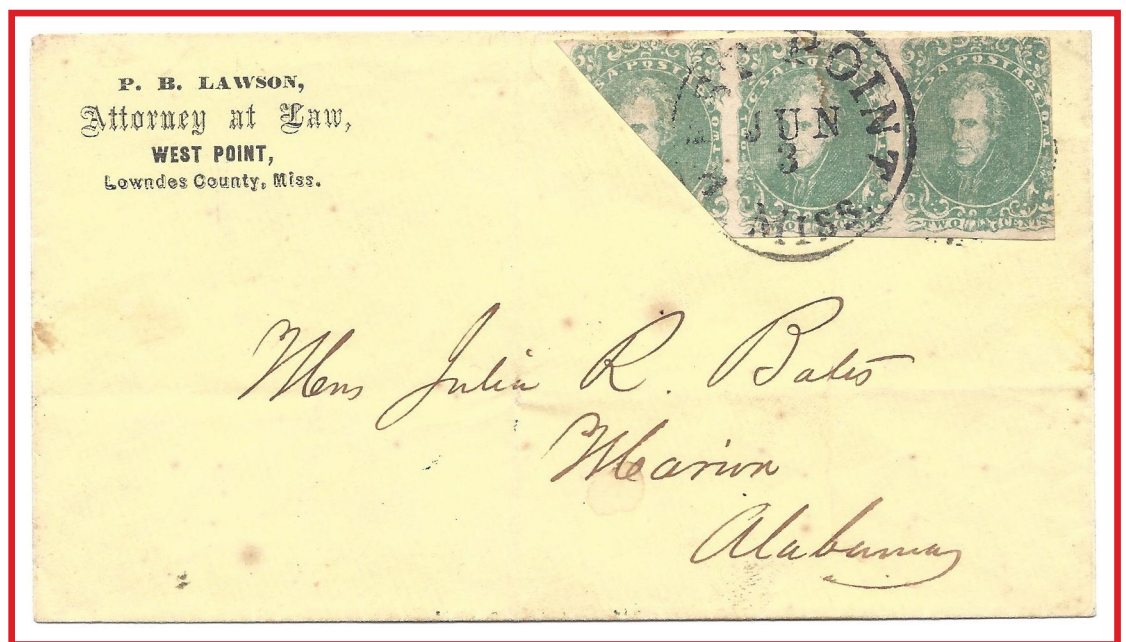 P. B. LAWSON,
Attorney at Law,
WEST POINT,
Lowndes County, Miss.
POINT
JUN
3
MISS.
CSA POSTAGE
TWO TEN CENTS
Julia R. Bates
Marion
Alabama